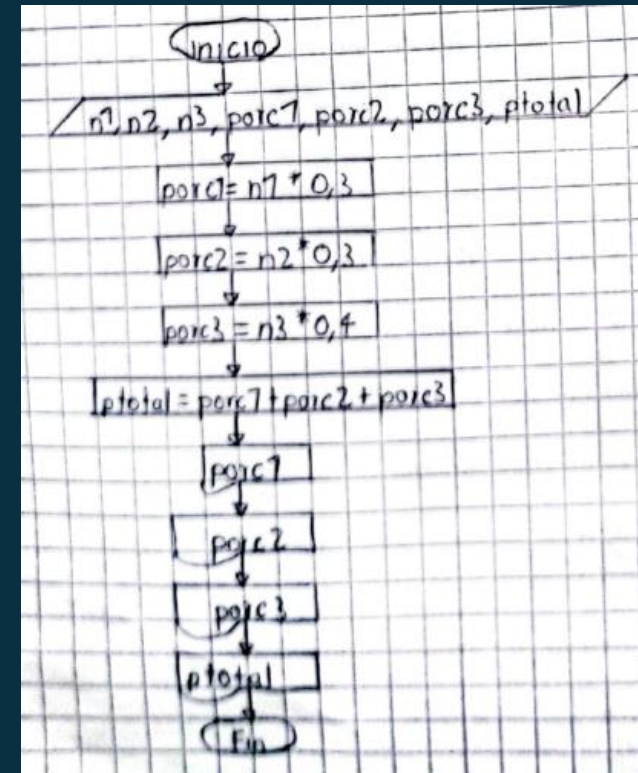 Inicio
n1, n2, n3, porc1, porc2, porc3, ptotal
porc1= n1 * 0,3
porc2= n2*0,3
porc3 = n3 *0,4
ptotal = porc1+porc2+porc3
porc1
porc2
porc3
ptotal
Fin